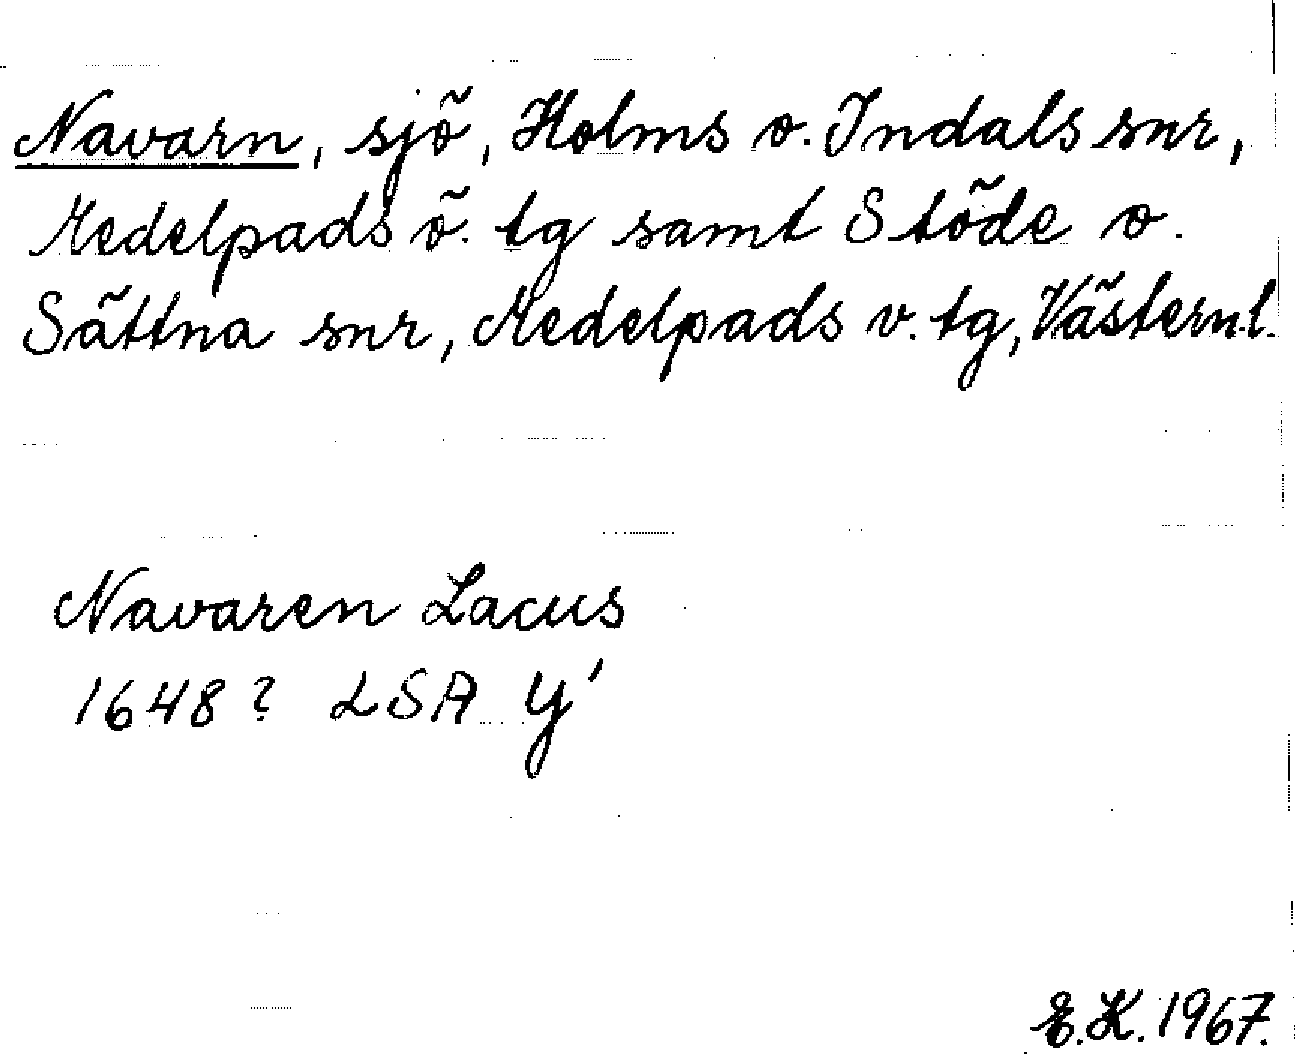 Navarn, sjö, Holms o. Indals snr,
Medelpads ö. tg samt Stöde o.
Sättna snr, Medelpads v. tg, Västernl.
Navaren Lacus
1648? LSA Y'
E.K. 1967.